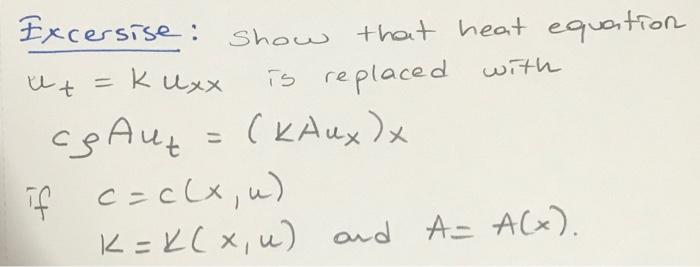 Excersise: Show that heat equation
u_t = k u_xx is replaced with
cρAu_t = (KAu_x)_x
if c = c(x,u)
K = K(x,u) and A = A(x).